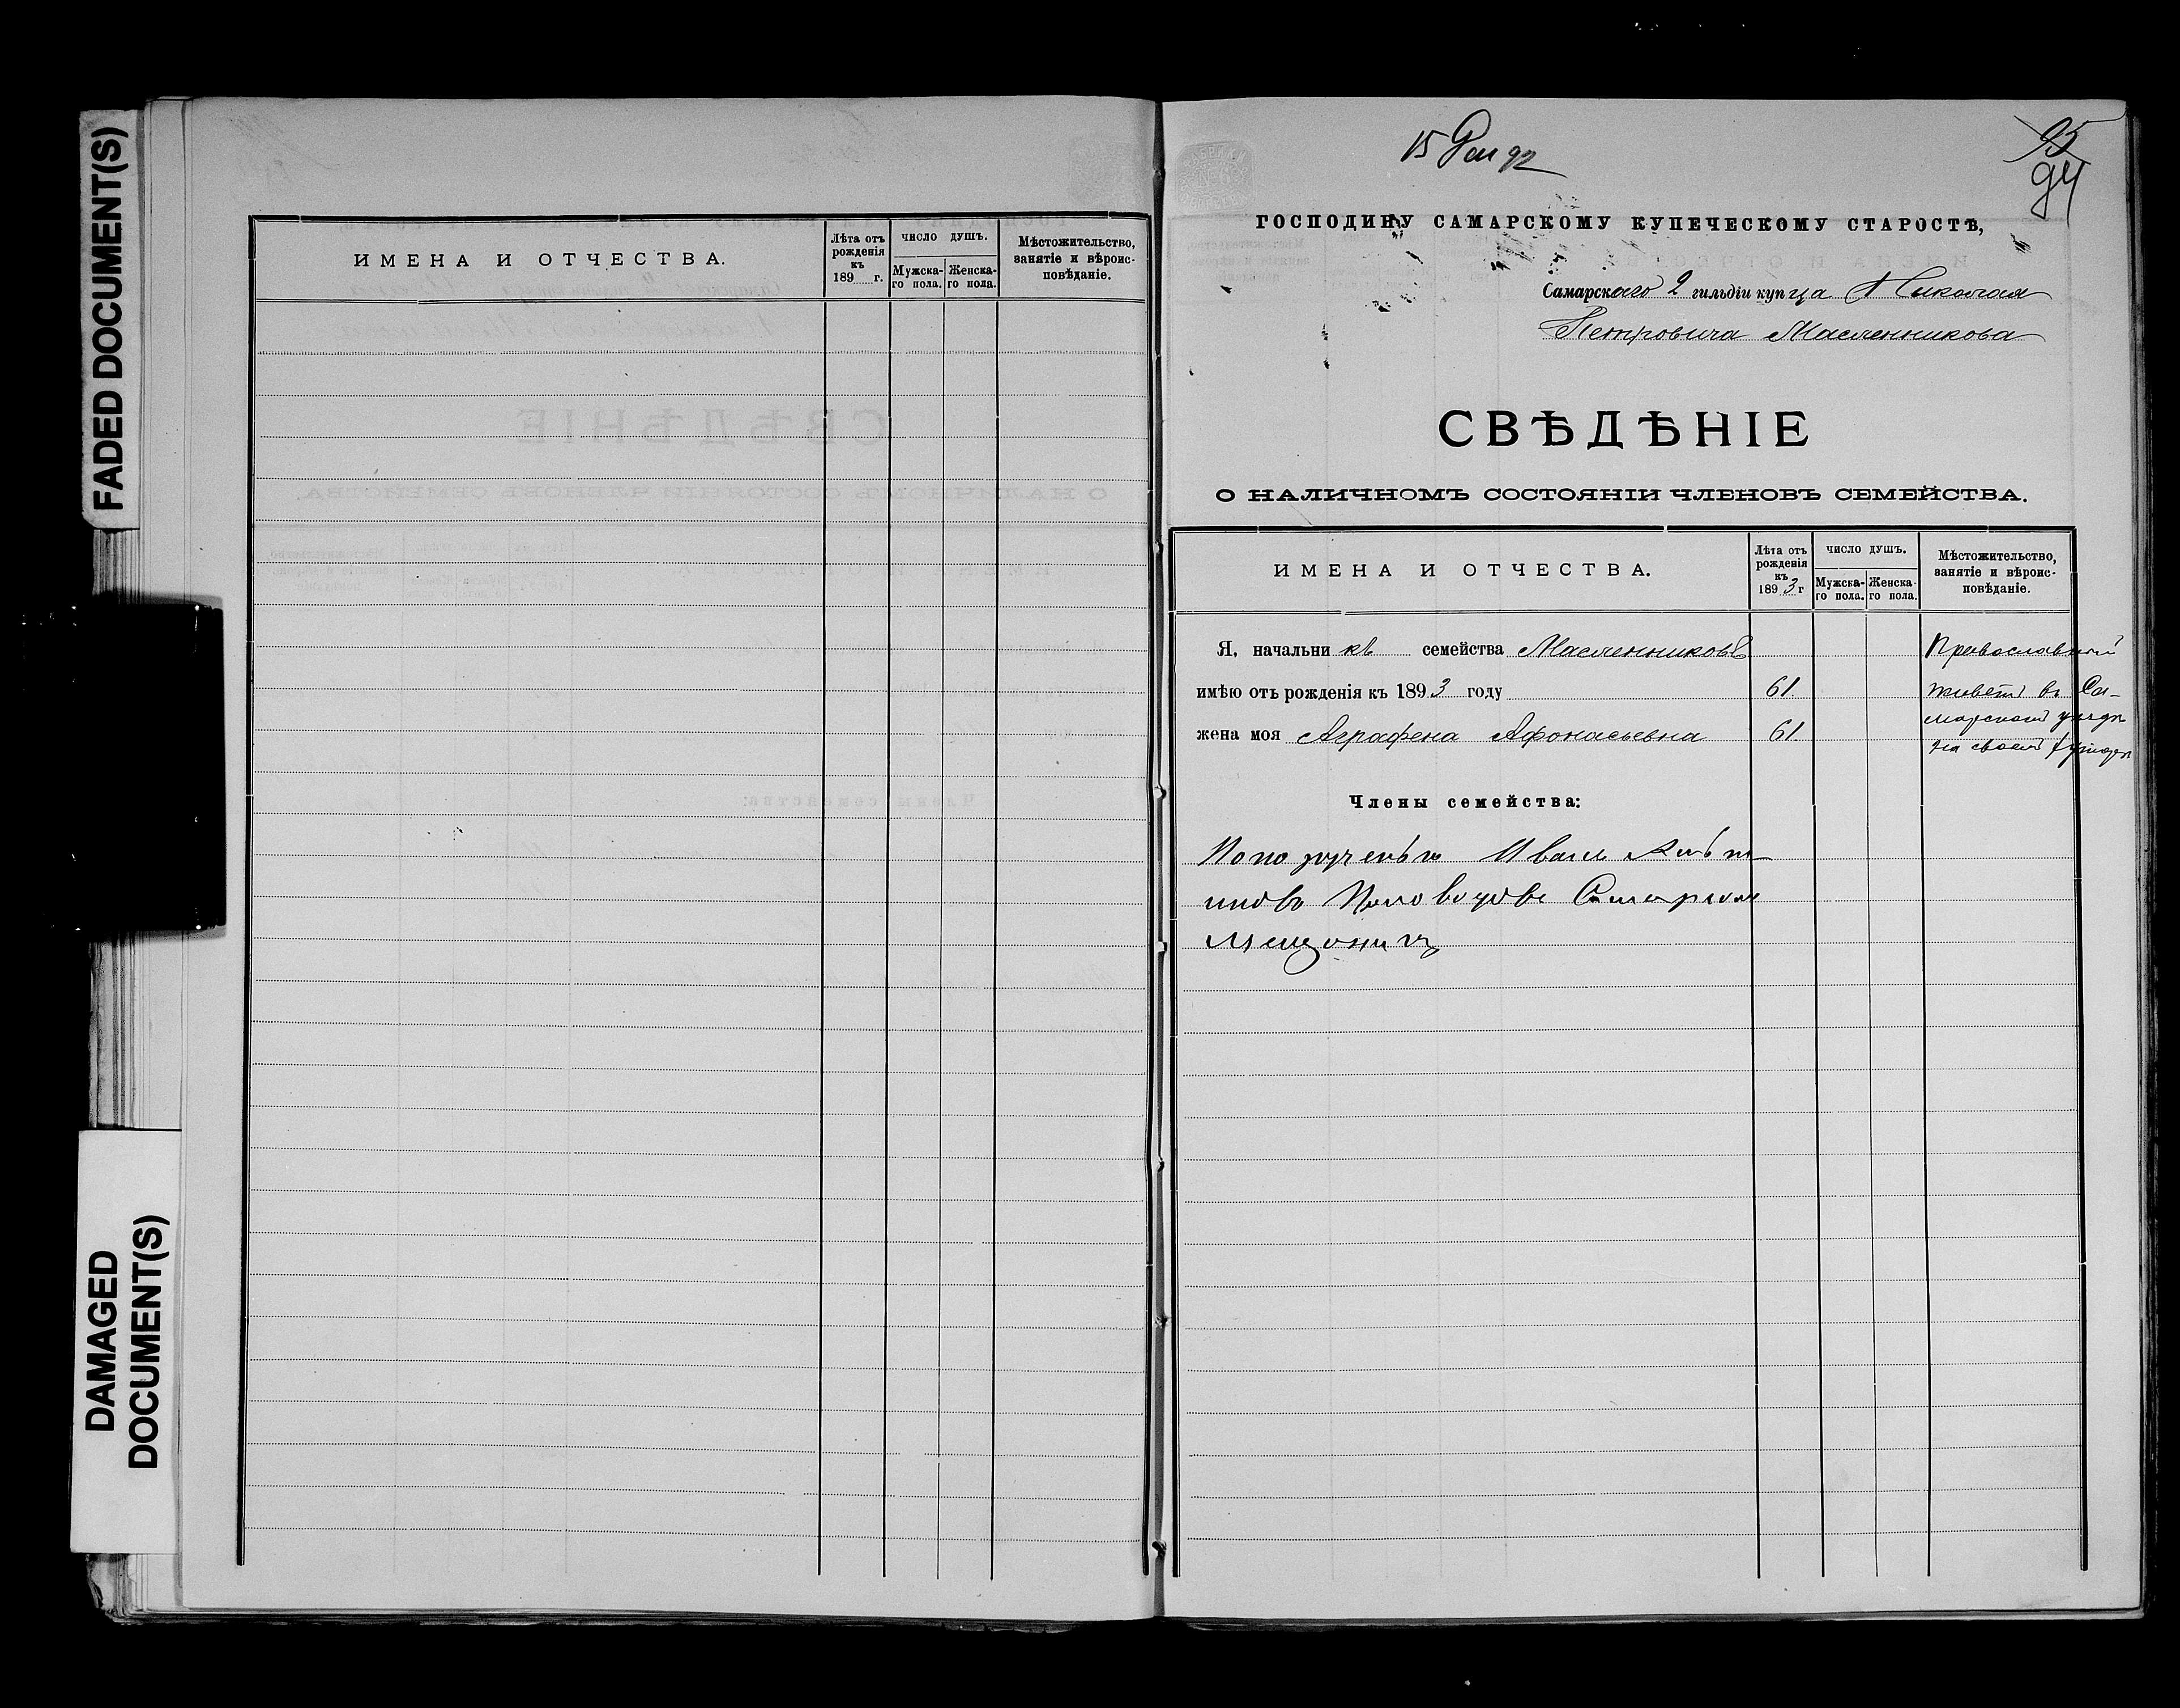 FADED DOCUMENT(S)
DAMAGED
DOCUMENT(S)
ИМЕНА И ОТЧЕСТВА.
Лѣта отъ
рожденія
къ
189 г.
ЧИСЛО ДУШЪ.
Мужска-
го пола.
Женска-
го пола.
Мѣстожительство,
занятіе и вѣроис-
повѣданіе.
15 92
95
94
ГОСПОДИНУ САМАРСКОМУ КУПЕЧЕСКОМУ СТАРОСТѢ,
Самарскаго 2 гильдіи купца Николая
Петровича Масленникова
СВѢДѢНІЕ
О НАЛИЧНОМЪ СОСТОЯНІИ ЧЛЕНОВЪ СЕМЕЙСТВА.
ИМЕНА И ОТЧЕСТВА.
Лѣта отъ
рожденія
къ
1893 г
ЧИСЛО ДУШЪ.
Мужска-
го пола.
Женска-
го пола.
Мѣстожительство,
занятіе и вѣроис-
повѣданіе.
Я, начальникъ семейства Масленниковъ
имѣю отъ рожденія къ 1893 году 61.
жена моя Аграфена Афонасьевна 61.
Православной
живетъ въ Са-
марском уезде
на своем
Члены семейства:
Иванъ